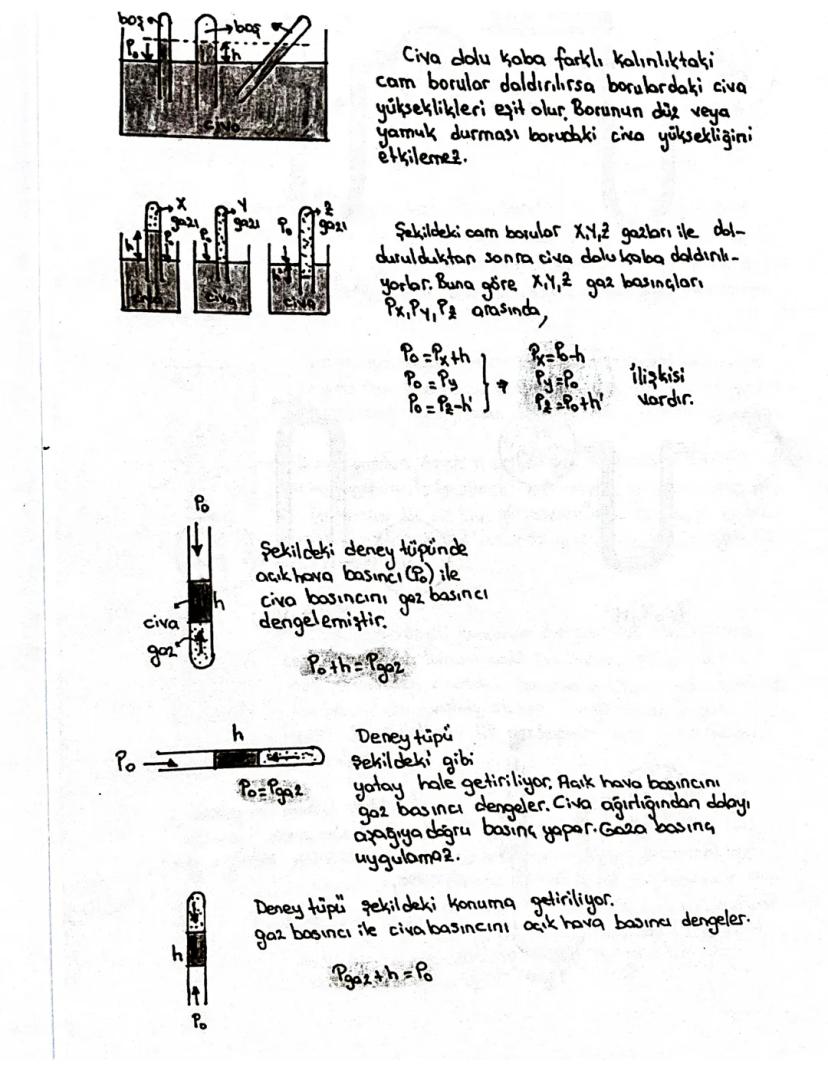 boş
boş
P₀
h
civa
Civa dolu kaba farklı kalınlıktaki
cam borular daldırılırsa borulardaki civa
yükseklikleri eşit olur. Borunun düz veya
yamuk durması borudaki civa yüksekliğini
etkilemez.
X gazı
Y gazı
Z gazı
h
P₀
P₀
P₀
h'
civa
civa
civa
Şekildeki cam borular X,Y,Z gazları ile dol-
durulduktan sonra civa dolu kaba daldırılı-
yorlar. Buna göre X,Y,Z gaz basınçları
Px, Py, Pz arasında,
P₀ = Px+h
P₀ = Py
P₀ = Pz-h'
Px = P₀-h
Py = P₀
Pz = P₀+h'
ilişkisi
vardır.
P₀
h
civa
gaz
Şekildeki deney tüpünde
açık hava basıncı (P₀) ile
civa basıncını gaz basıncı
dengelemiştir.
P₀+h = Pgaz
h
P₀
P₀ = Pgaz
Deney tüpü
şekildeki gibi
yatay hale getiriliyor. Açık hava basıncını
gaz basıncı dengeler. Civa ağırlığından dolayı
aşağıya doğru basınç yapar. Gaza basınç
uygulamaz.
h
P₀
Deney tüpü şekildeki konuma getiriliyor.
gaz basıncı ile civa basıncını açık hava basıncı dengeler.
Pgaz + h = P₀